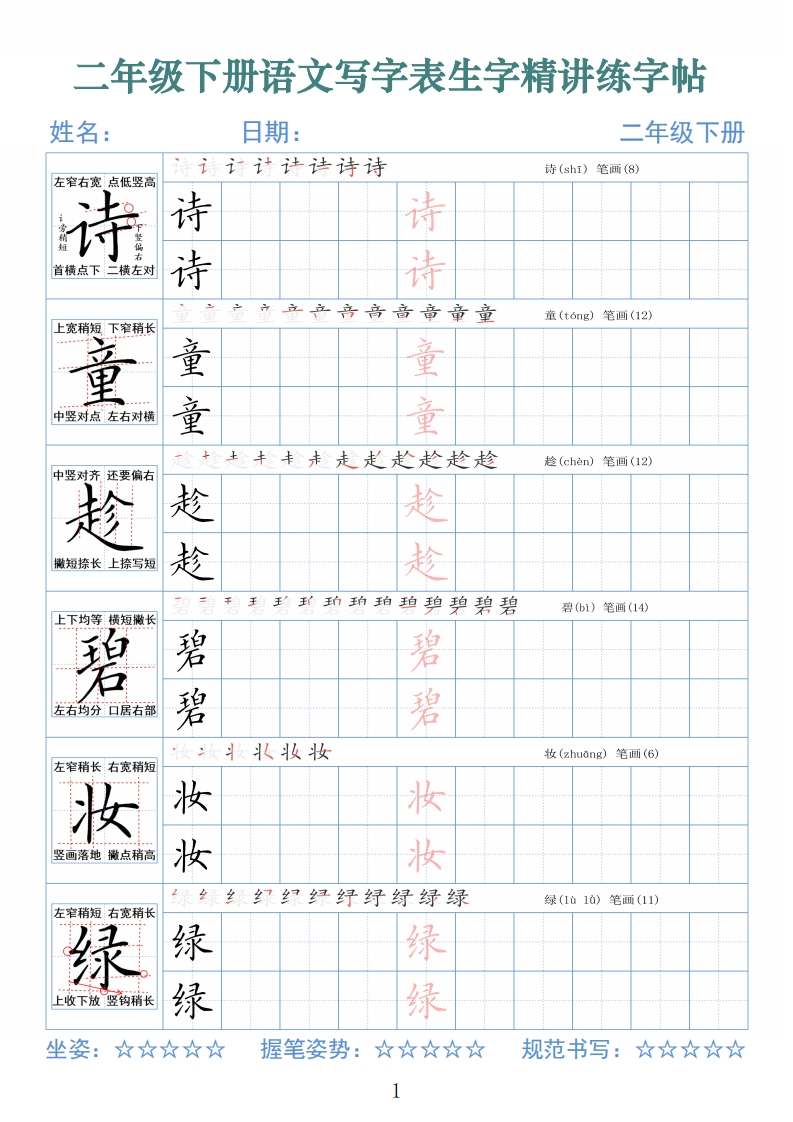 二年级下册语文写字表生字精讲练字帖
姓名： 日期： 二年级下册
诗 诗 诗 诗 诗 诗 诗 诗 诗(shī) 笔画(8)
左窄右宽 点低竖高
讠旁稍短 诗 下竖偏右
首横点下 二横左对
诗 诗
诗 诗
童 童 童 童 童 童 童 童 童 童 童 童 童(tóng) 笔画(12)
上宽稍短 下窄稍长
童
中竖对点 左右对横
童 童
童 童
趁 趁 趁 趁 趁 趁 趁 趁 趁 趁 趁 趁 趁(chèn) 笔画(12)
中竖对齐 还要偏右
趁
撇短捺长 上捺写短
趁 趁
趁 趁
碧 碧 碧 碧 碧 碧 碧 碧 碧 碧 碧 碧 碧 碧 碧(bì) 笔画(14)
上下均等 横短撇长
碧
左右均分 口居右部
碧 碧
碧 碧
妆 妆 妆 妆 妆 妆 妆(zhuāng) 笔画(6)
左窄稍长 右宽稍短
妆
竖画落地 撇点稍高
妆 妆
妆 妆
绿 绿 绿 绿 绿 绿 绿 绿 绿 绿 绿 绿(lù lǜ) 笔画(11)
左窄稍短 右宽稍长
绿
上收下放 竖钩稍长
绿 绿
绿 绿
坐姿：☆☆☆☆☆ 握笔姿势：☆☆☆☆☆ 规范书写：☆☆☆☆☆
1